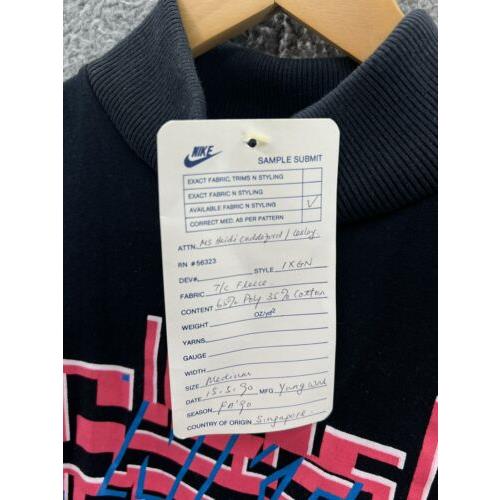 NIKE
SAMPLE SUBMIT
EXACT FABRIC, TRIMS N STYLING
EXACT FABRIC N STYLING
AVAILABLE FABRIC N STYLING ✓
CORRECT MED. AS PER PATTERN
ATTN. Ms Heidi / Lesley
RN #56323
DEV# STYLE 1XGN
FABRIC T/c Fleece
CONTENT 65% Poly 35% Cotton
WEIGHT OZ/yd²
YARNS
GAUGE
WIDTH
SIZE Medium
DATE 15.3.90 MFG Yang
SEASON FA'90
COUNTRY OF ORIGIN Singapore.